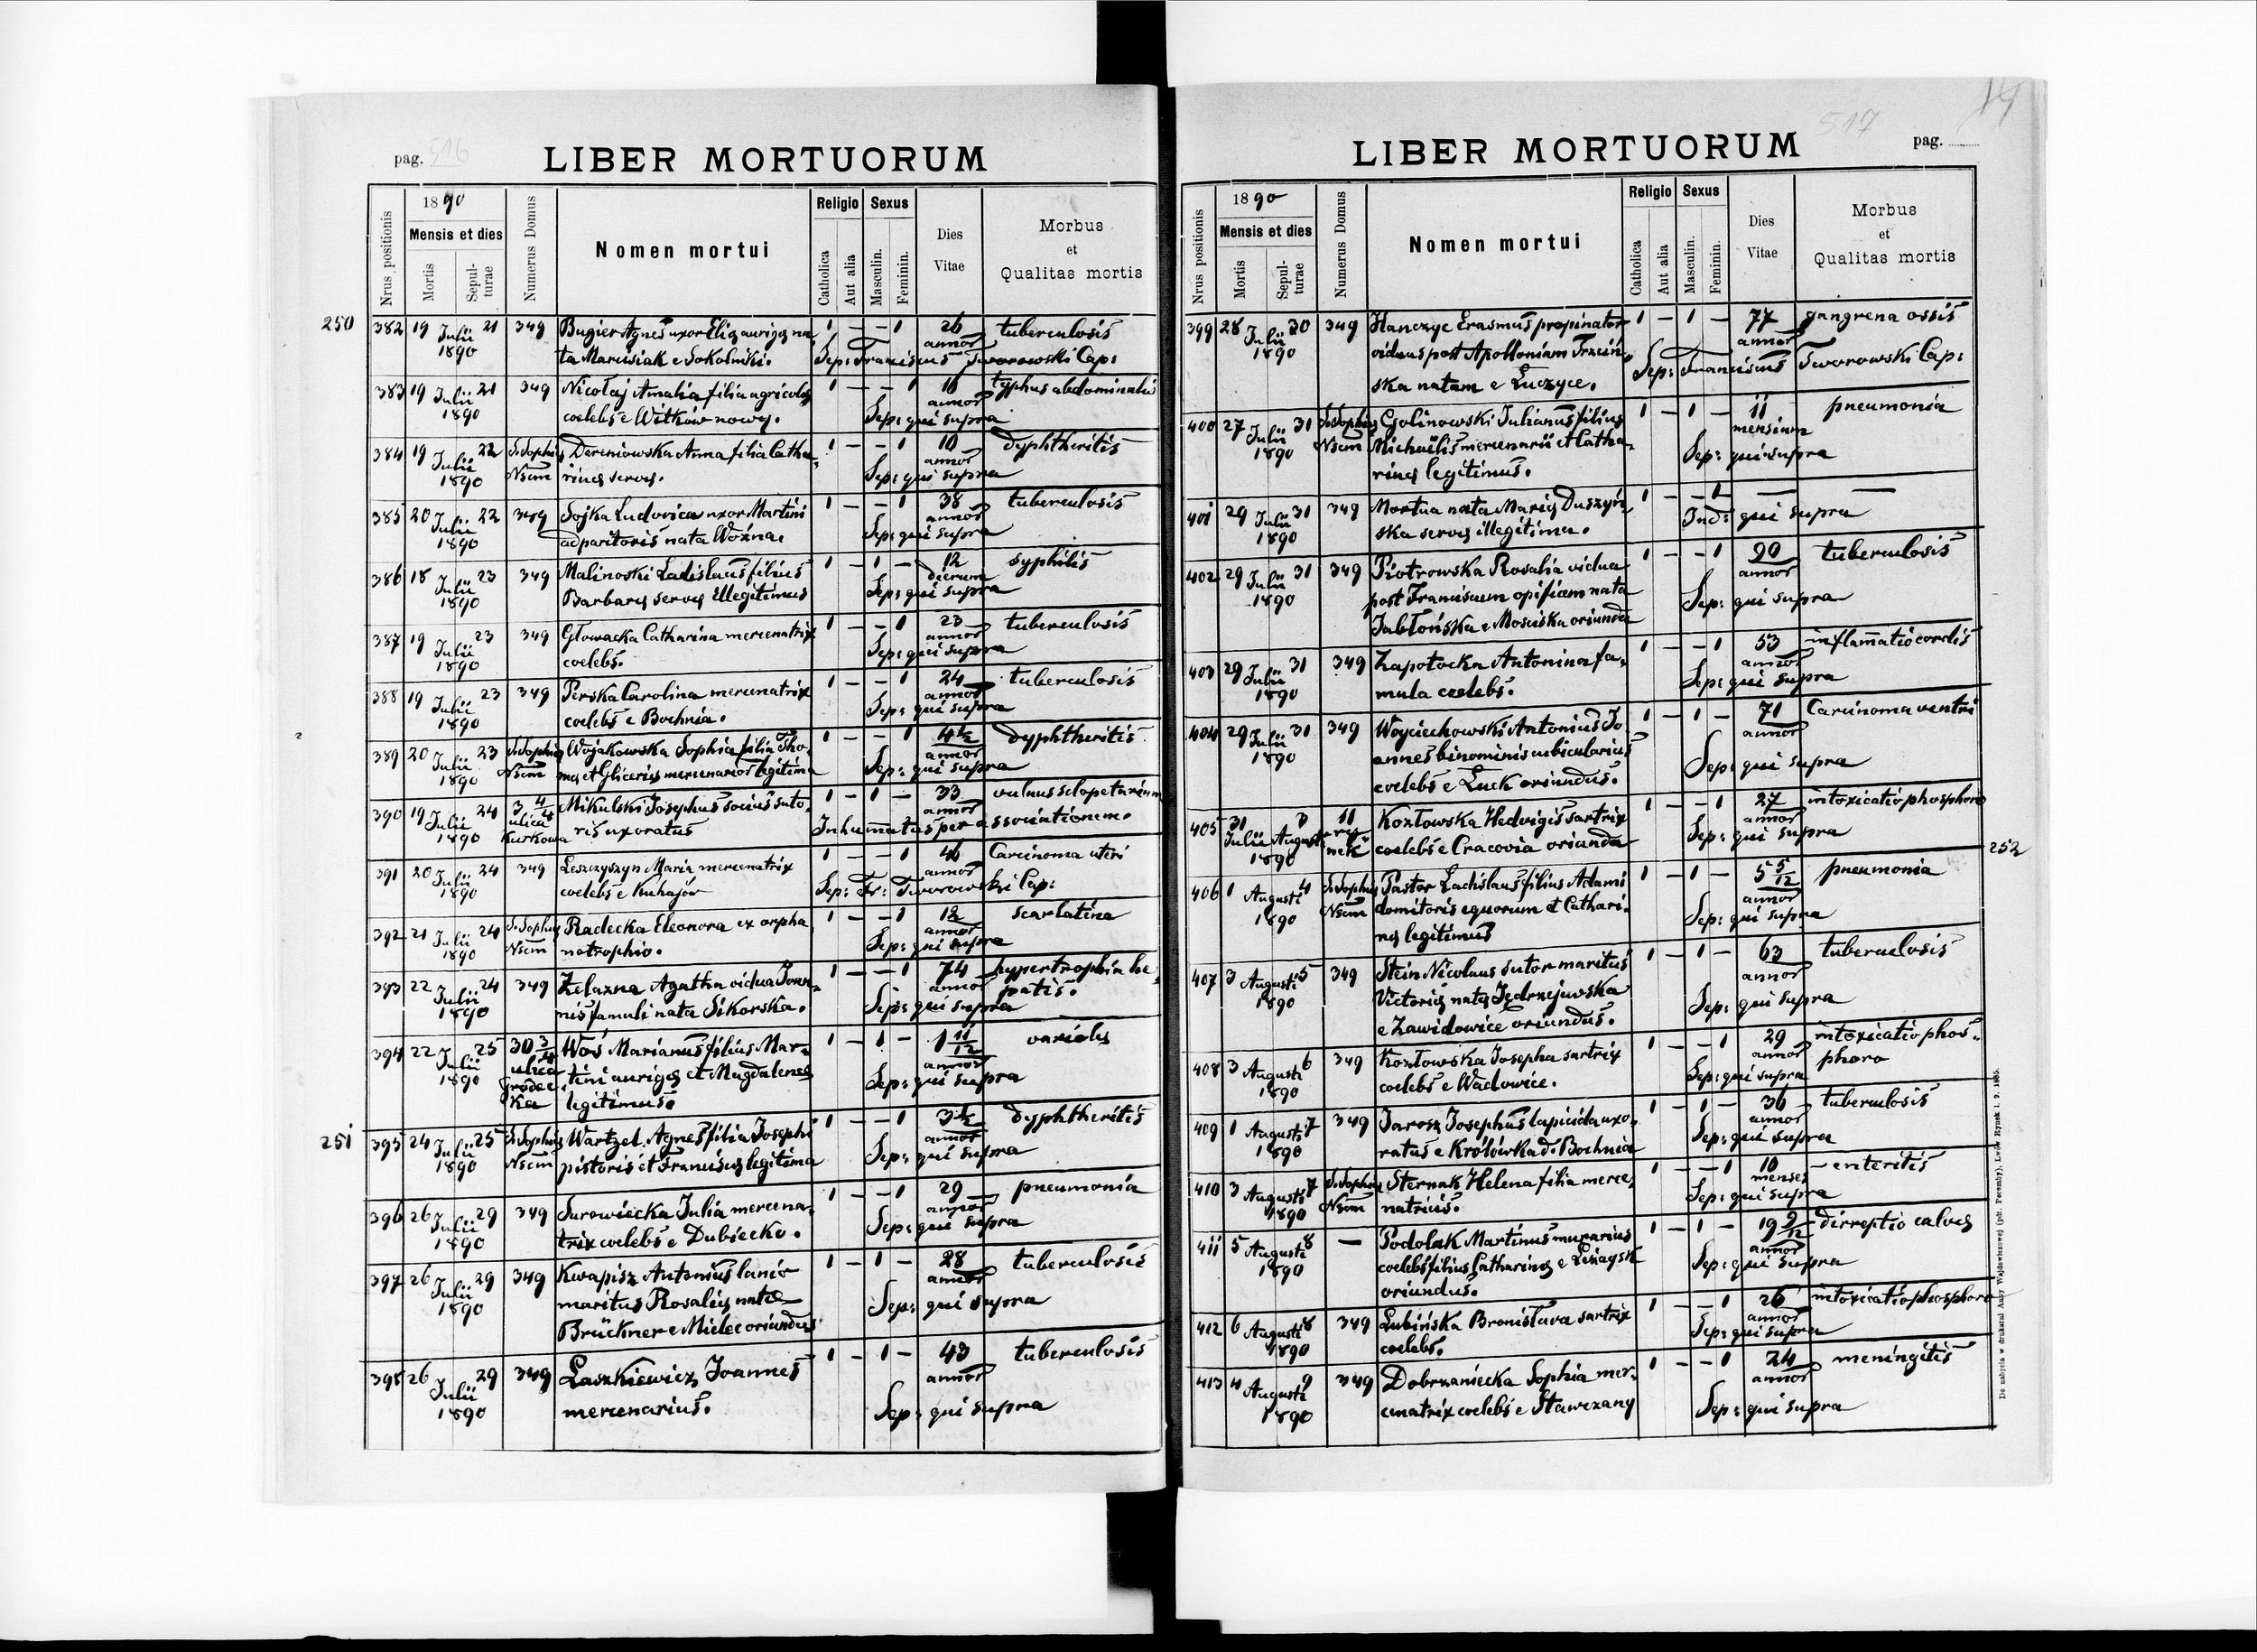 pag. 516
LIBER MORTUORUM
Nrus positionis
1890
Mensis et dies
Mortis
Sepul-
turae
Numerus Domus
Nomen mortui
Religio
Catholica
Aut alia
Sexus
Masculin.
Feminin.
Dies
Vitae
Morbus
et
Qualitas mortis
250
382 19 Julii 21 349 Bugier Agnes uxor Eliæ aurigæ na 1 — — 1 26 tuberculosis
1890 ta Marusiak e Sokolniki. annor
Sep: Franciscus Tworowski Cap:
383 19 Julii 21 349 Nicołaj Amalia filia agricolæ 1 — — 1 16 typhus abdominalis
1890 coelebs e Witków nowy. annor
Sep: qui supra
384 19 Julii 22 S. Sophiæ Dereniowska Anna filia Catha- 1 — — 1 10 dyphtheritis
1890 Nscm rinæ servæ. annor
Sep: qui supra
385 20 Julii 22 349 Sojka Ludovica uxor Martini 1 — — 1 38 tuberculosis
1890 adparitoris nata Woźna. annor
Sep: qui supra
386 18 Julii 23 349 Malinoski Ladislaus filius 1 — 1 — 12 syphilis
1890 Barbaræ servæ Illegitimus dierum
Sep: qui supra
387 19 Julii 23 349 Głowacka Catharina mercenatrix 1 — — 1 23 tuberculosis
1890 coelebs. annor
Sep: qui supra
388 19 Julii 23 349 Perska Carolina mercenatrix 1 — — 1 24 tuberculosis
1890 coelebs e Bochnia. annor
Sep: qui supra
389 20 Julii 23 S. Sophiæ Wojakowska Sophia filia Tho- 1 — — 1 4½ dyphtheritis
1890 Nscm mæ et Gliceriæ mercenarior legitima annor
Sep: qui supra
390 19 Julii 24 3 4/4 Mikulski Josephus socius suto- 1 — 1 — 33 vulnus sclopetarium
1890 ulica Kurkowa ris uxoratus annor
Inhumatus per associationem.
391 20 Julii 24 349 Leszczyszyn Maria mercenatrix 1 — — 1 46 Carcinoma uteri
1890 coelebs e Kuhajów annor
Sep: Fr: Tworowski Cap:
392 21 Julii 24 S. Sophiæ Radecka Eleonora ex orpha 1 — — 1 12 scarlatina
1890 Nscm notrophio. annor
Sep: qui supra
393 22 Julii 24 349 Żelazna Agatha vidua Joan- 1 — — 1 74 hypertrophia he-
1890 nis famuli nata Sikorska. annor patis.
Sep: qui supra
394 22 Julii 25 30 3/4 Woś Marianus filius Mar- 1 — 1 — 1 11/12 variolis
1890 ulica tini aurigæ et Magdalenæ annor
Grodec-
ka legitimus. Sep: qui supra
251
395 24 Julii 25 S. Sophiæ Wartzel Agnes filia Josephi 1 — — 1 3½ dyphtheritis
1890 Nscm pistoris et Franciscæ legitima annor
Sep: qui supra
396 26 Julii 29 349 Surowiecka Julia mercena- 1 — — 1 29 pneumonia
1890 trix coelebs e Dubiecko. annor
Sep: qui supra
397 26 Julii 29 349 Kwapisz Antonius lanio 1 — 1 — 28 tuberculosis
1890 maritus Rosaliæ natæ annor
Brückner e Mielec oriundus Sep: qui supra
398 26 Julii 29 349 Laszkiewicz Joannes 1 — 1 — 43 tuberculosis
1890 mercenarius. annor
Sep: qui supra
517
pag.
LIBER MORTUORUM
Nrus positionis
1890
Mensis et dies
Mortis
Sepul-
turae
Numerus Domus
Nomen mortui
Religio
Catholica
Aut alia
Sexus
Masculin.
Feminin.
Dies
Vitae
Morbus
et
Qualitas mortis
399 28 Julii 30 349 Hanczyc Erasmus propinator 1 — 1 — 77 gangrena ossis
1890 viduus post Apolloniam Trzciń- annor
ska natam e Luczyce. Sep: Franciscus Tworowski Cap:
400 27 Julii 31 S. Sophiæ Golinowski Julianus filius 1 — 1 — 11 pneumonia
1890 Nscm Michaëlis mercenarii et Catha- mensium
rinæ legitimus. Sep: qui supra
401 29 Julii 31 349 Mortua nata Mariæ Duszyń 1 — — 1 — —
1890 ska servæ illegitima. Ind: qui supra
402 29 Julii 31 349 Piotrowska Rosalia vidua 1 — — 1 90 tuberculosis
1890 post Franciscum opificem nata annor
Jabłońska e Mosciska oriunda Sep: qui supra
403 29 Julii 31 349 Zapotocka Antonina fa- 1 — — 1 53 inflamatio cordis
1890 mula coelebs. annor
Sep: qui supra
404 29 Julii 31 349 Woyciechowski Antonius Jo 1 — 1 — 71 Carcinoma ventri
1890 annes binominis cubicularius annor
coelebs e Łuck oriundus. Sep: qui supra
405 31 Julii 3 Augusti 11 Kozłowska Hedvigis sartrix 1 — — 1 27 intoxicatio phosphoro
1890 rynek coelebs e Cracovia oriunda annor
Sep: qui supra
252
406 1 Augusti 4 S. Sophiæ Pastor Ladislaus filius Adami 1 — 1 — 5 5/12 pneumonia
1890 Nscm domitoris equorum et Cathari- annor
næ legitimus Sep: qui supra
407 3 Augusti 5 349 Stein Nicolaus sutor maritus 1 — 1 — 63 tuberculosis
1890 Victoriæ natæ Jędrzejewska annor
e Zawidowice oriundus. Sep: qui supra
408 3 Augusti 6 349 Kozłowska Josepha sartrix 1 — — 1 29 intoxicatio phos-
1890 coelebs e Wadowice. annor phoro
Sep: qui supra
409 1 Augusti 7 349 Jarosz Josephus lapicida uxo- 1 — 1 — 36 tuberculosis
1890 ratus e Królówka d. Bochnia annor
Sep: qui supra
410 3 Augusti 7 S. Sophiæ Sternak Helena filia merce- 1 — — 1 10 enteritis
1890 Nscm natricis. menses
Sep: qui supra
411 5 Augusti 8 — Podolak Martinus murarius 1 — 1 — 19 9/12 dirreptio calvæ
1890 coelebs filius Catharinæ e Leżaysk annor
oriundus. Sep: qui supra
412 6 Augusti 8 349 Lubińska Bronislava sartrix 1 — — 1 26 intoxicatio phosphoro
1890 coelebs. annor
Sep: qui supra
413 4 Augusti 9 349 Dobrzaniecka Sophia mer- 1 — — 1 24 meningitis
1890 cenatrix coelebs e Stawczany annor
Sep: qui supra
Do nabycia w drukarni Anny Wajdowiczowej (pdr. Poremby), Lwów Rynek l. 9. 1885.